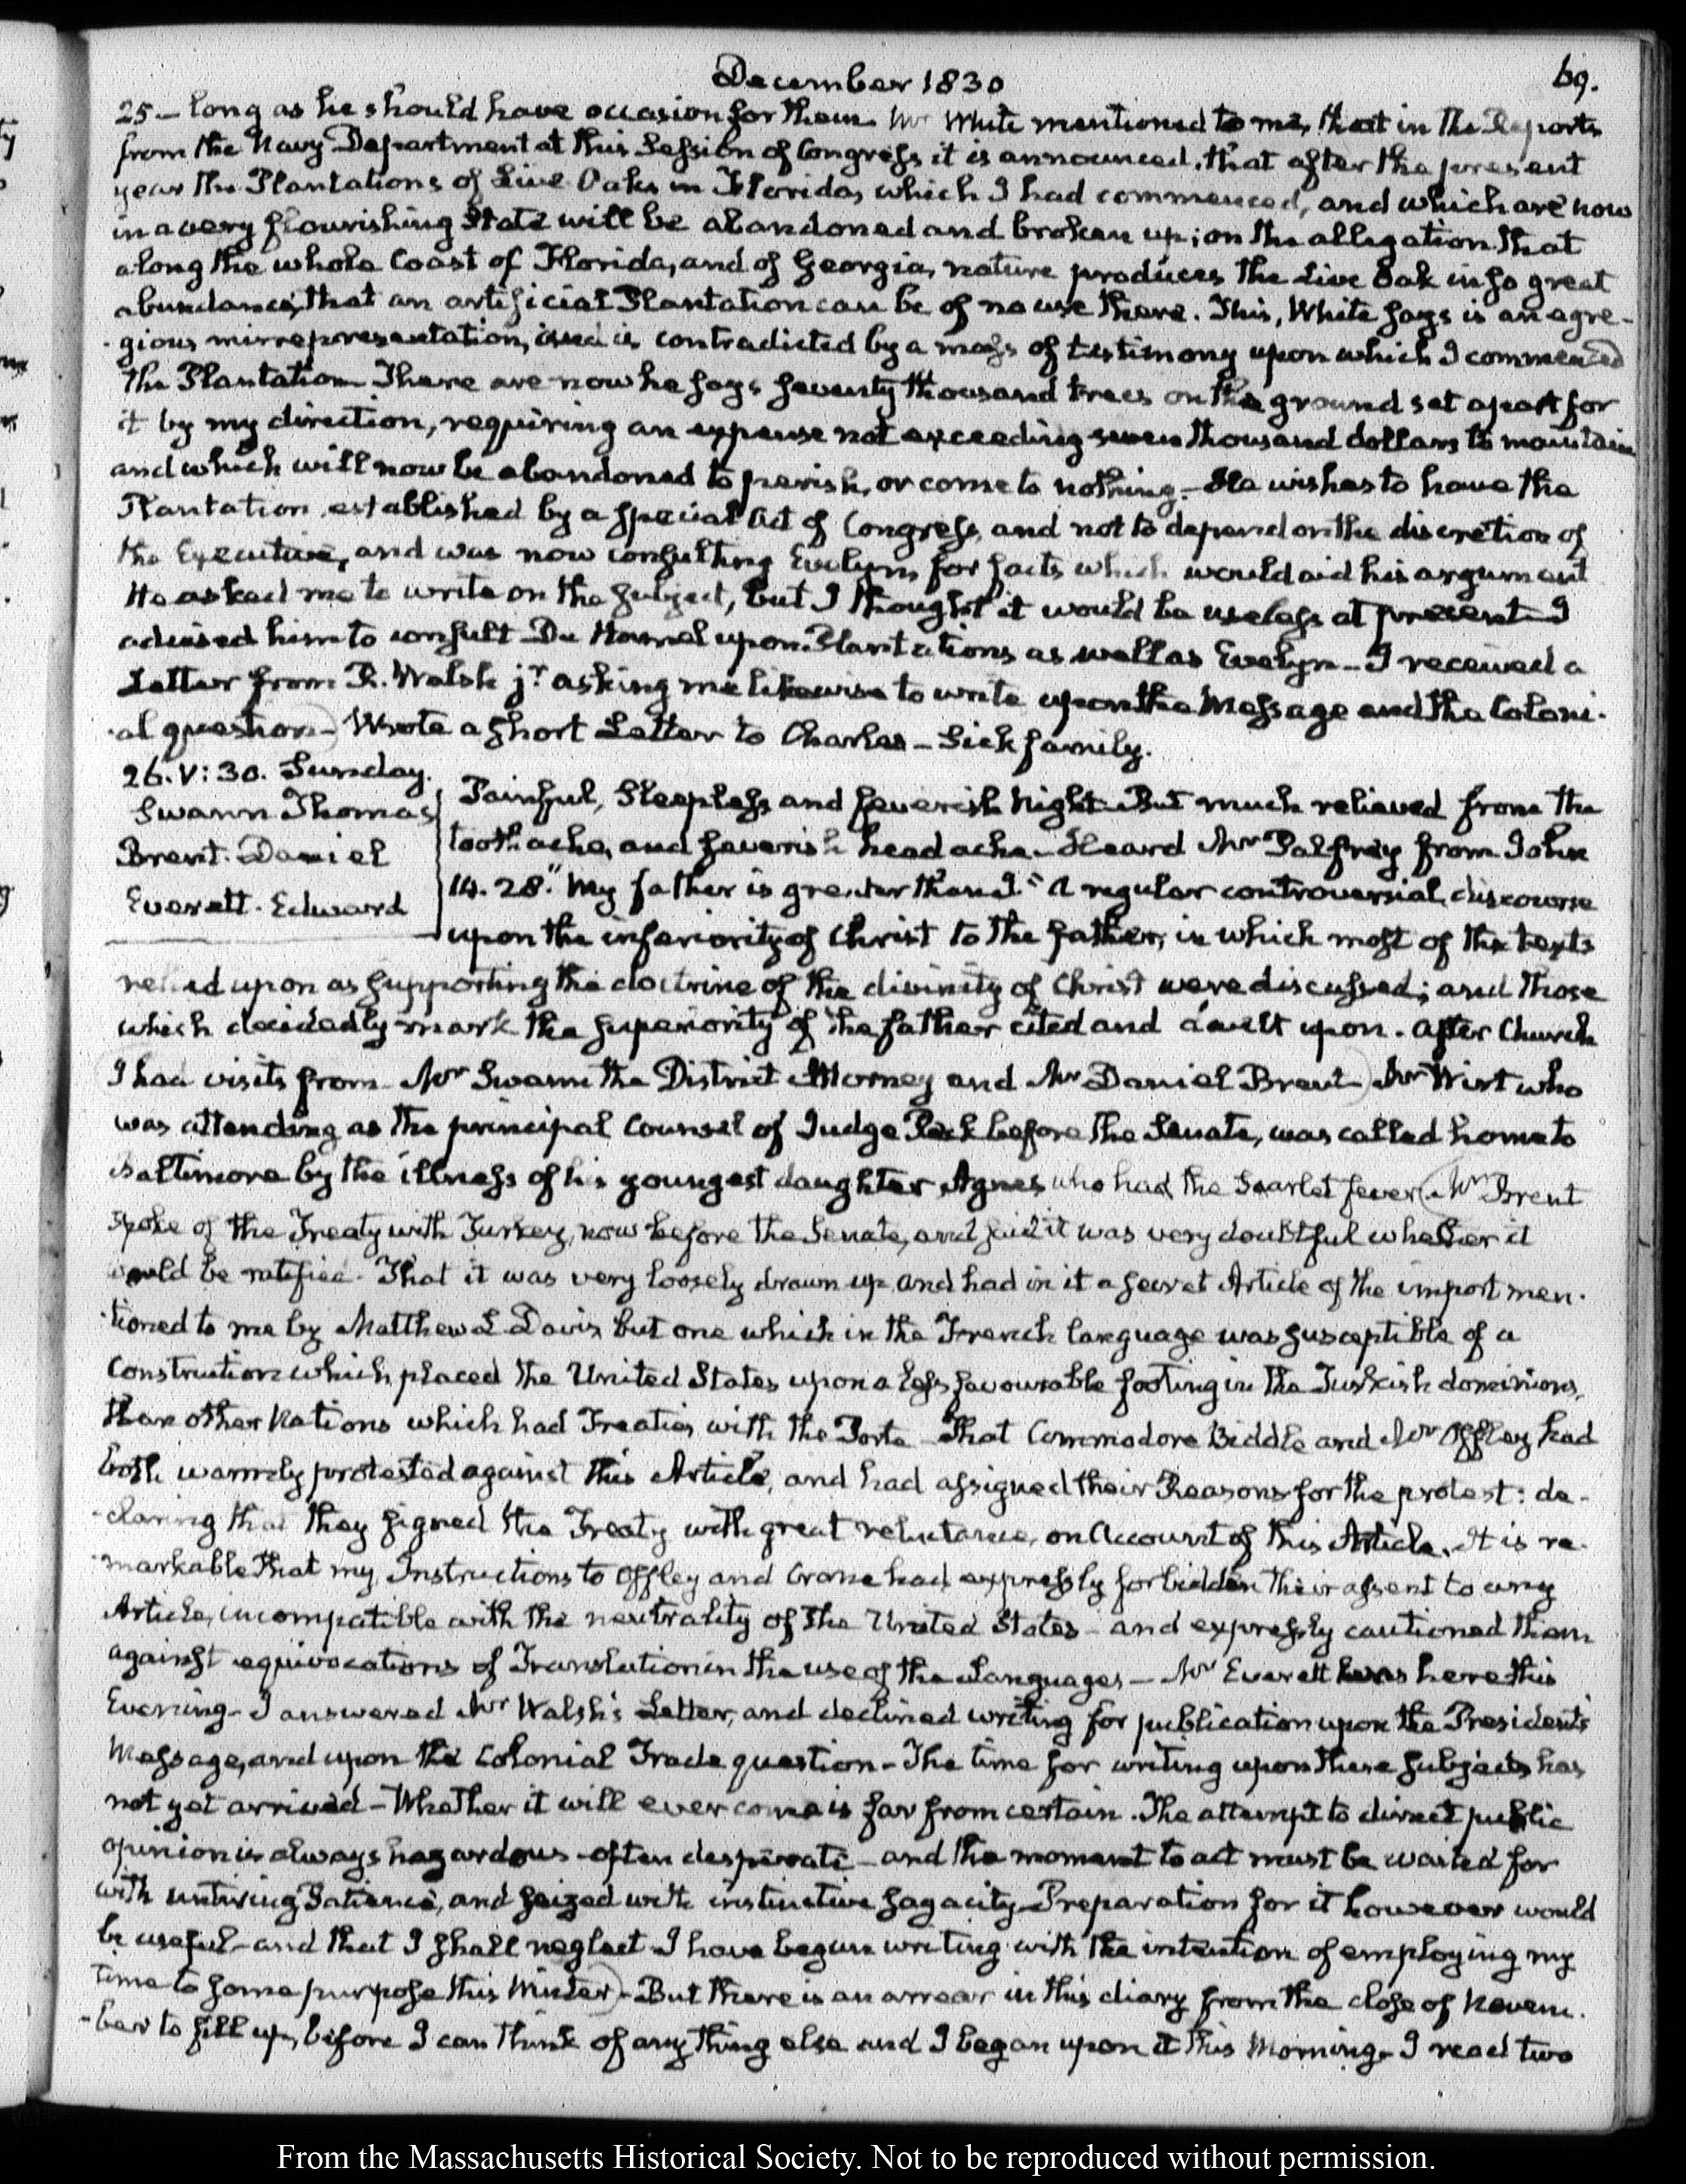 December 1830
69.
25 — long as he should have occasion for them. Mr White mentioned to me, that in the Reports
from the Navy Department at this Session of Congress it is announced, that after the present
year the Plantations of Live Oaks in Florida, which I had commenced, and which are now
in a very flourishing State will be abandoned and broken up; on the allegation that
along the whole Coast of Florida, and of Georgia, nature produces the Live Oak in so great
abundance, that an artificial Plantation can be of no use there. This, White says is an agre-
-gious misrepresentation, and is contradicted by a mass of testimony upon which I commenced
the Plantation There are now he says seventy thousand trees on the ground set apart for
it by my direction, requiring an expense not exceeding seven thousand dollars to maintain
and which will now be abandoned to perish, or come to nothing. — He wishes to have the
Plantation established by a special Act of Congress, and not to depend on the discretion of
the Executive, and was now consulting Evelyn, for facts which would aid his argument
He asked me to write on the subject, but I thought it would be useless at present — I
advised him to consult Du Hamel upon Plantations as well as Evelyn — I received a
Letter from R. Walsh jr. asking me likewise to write upon the Message and the Coloni-
-al question — Wrote a short Letter to Charles — Sick family.
26. V: 30. Sunday.
Swann Thomas
Brent. Daniel
Everett. Edward
Painful, Sleepless and feverish Night. But much relieved from the
tooth ache, and feverish head ache — Heard Mr Palfrey from John
14. 28. "My father is greater than I." A regular controversial discourse
upon the inferiority of Christ to the father, in which most of the texts
relied upon as supporting the doctrine of the divinity of Christ were discussed; and those
which decidedly mark the superiority of the father cited and dwelt upon. After Church
I had visits from Mr Swann the District Attorney and Mr Daniel Brent) Mr Wirt who
was attending as the principal Counsel of Judge Peck before the Senate, was called home to
Baltimore by the illness of his youngest daughter Agnes who had the Scarlet fever (Mr Brent
spoke of the Treaty with Turkey, now before the Senate, and said it was very doubtful whether it
would be ratified. That it was very loosely drawn up and had in it a secret Article of the import men-
-tioned to me by Matthew L Davis but one which in the French language was susceptible of a
Construction which placed the United States upon a less favourable footing in the Turkish dominions,
than other Nations which had Treaties with the Porte That Commodore Biddle and Mr Offley had
both warmly protested against this Article, and had assigned their Reasons for the protest: de-
-claring that they signed the Treaty with great reluctance, on Account of this Article. It is re-
-markable that my Instructions to Offley and Crane had expressly forbidden their assent to any
Article, incompatible with the neutrality of the United States — and expressly cautioned them
against equivocations of Translation in the use of the Languages — Mr Everett was here this
Evening — I answered Mr Walsh's Letter, and declined writing for publication upon the President's
Message, and upon the Colonial Trade question — The time for writing upon these subjects has
not yet arrived — Whether it will ever come is far from certain. The attempt to direct public
opinion is always hazardous — often desperate — and the moment to act must be waited for
with untiring Patience, and seized with instinctive sagacity. Preparation for it however would
be useful — and that I shall neglect — I have begun writing with the intention of employing my
time to some purpose this Winter) — But there is an arrear in this diary from the close of Novem-
-ber to fill up, before I can think of any thing else and I began upon it this Morning — I read two
From the Massachusetts Historical Society. Not to be reproduced without permission.